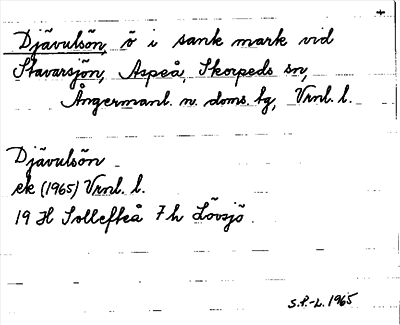 Djävulsön, ö i sank mark vid
Stavarsjön, Aspeå, Skorpeds sn,
Ångermanl. n. doms. tg, Vrnl. l.
Djävulsön
ek (1965) Vrnl. l.
19 H Sollefteå 7 h Lövsjö.
S.P.-L. 1965